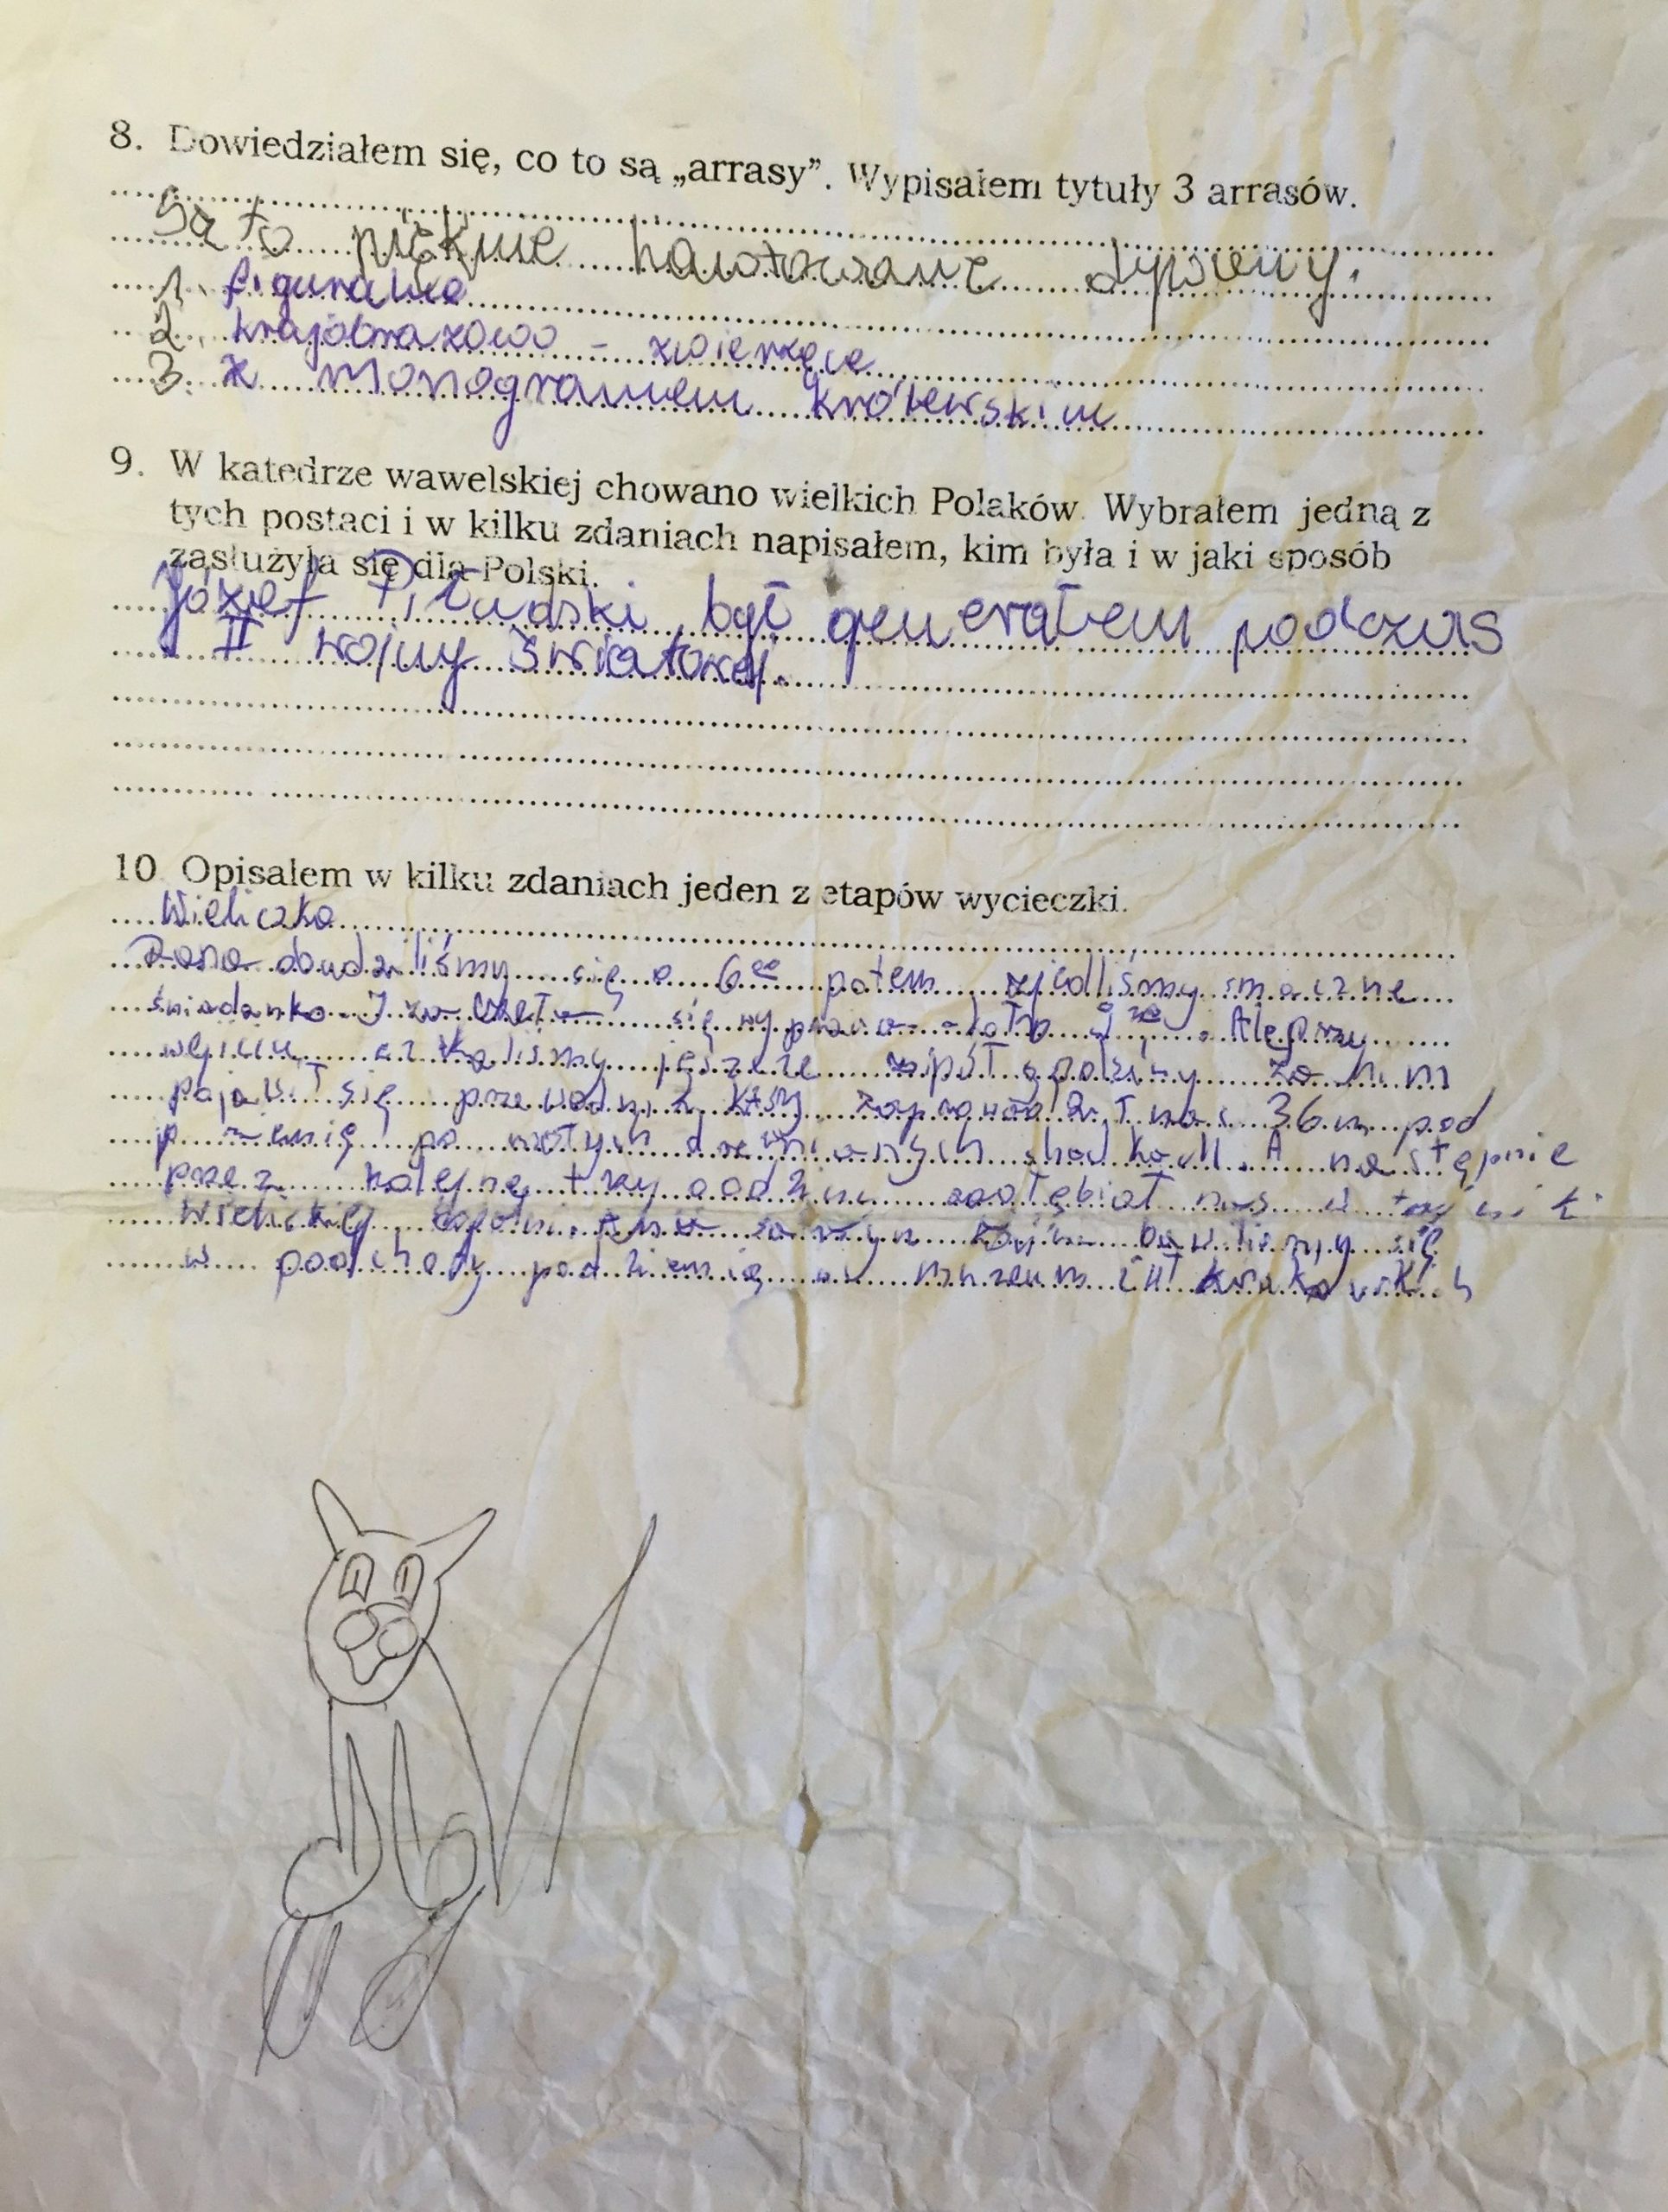 8. Dowiedziałem się, co to są „arrasy”. Wypisałem tytuły 3 arrasów.
Są to piękne hawtowane dywieny.
1. figuralne
2. krajobrazowo - zwierzęce
3. z monogramem królewskim
9. W katedrze wawelskiej chowano wielkich Polaków. Wybrałem jedną z
tych postaci i w kilku zdaniach napisałem, kim była i w jaki sposób
zasłużyła się dla Polski.
Józef Piłudski był generałem podczas
II wojny światowej.
10 Opisałem w kilku zdaniach jeden z etapów wycieczki.
Wieliczka
Rano obudziliśmy się o 6⁰⁰ potem zjedliśmy smaczne
śniadanko. I się Ale przy
wejściu czekaliśmy jeszcze pół godziny za nim
pojawił się przewodnik, który zaprowadził nas 36 m pod
p ziemię po drewnianych shodkach. A następnie
przez kolejne try godziny zagłębiał nas w
Wielickiej bawiliśmy się
w podchody pod ziemią w muzeum krakowskich